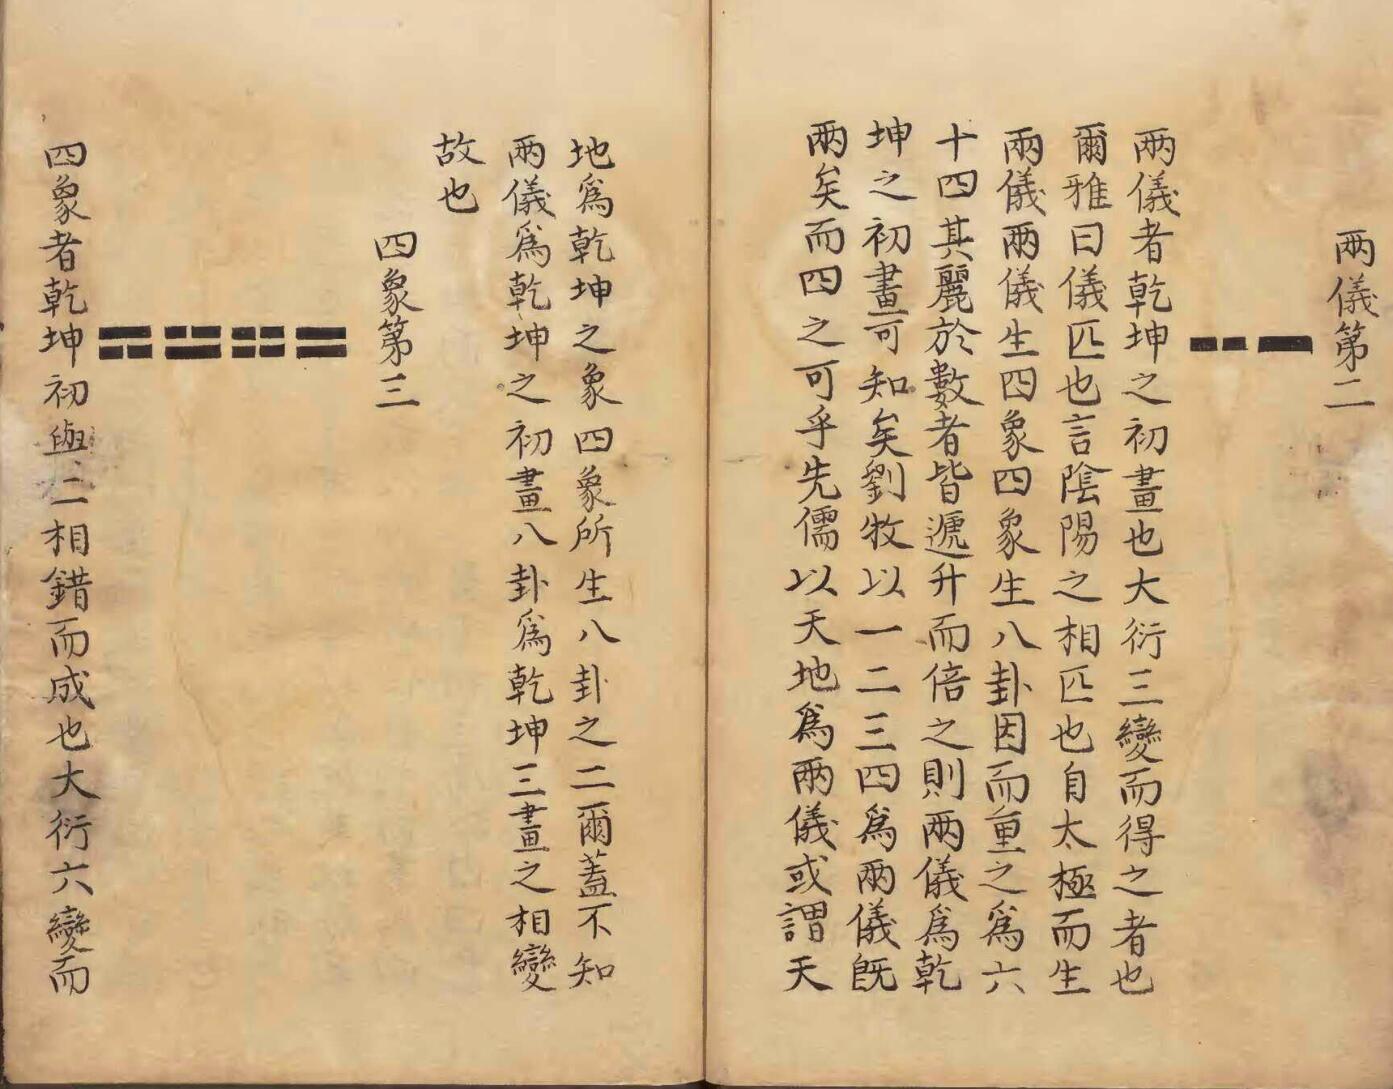 兩儀第二
兩儀者乾坤之初畫也大衍三變而得之者也
爾雅曰儀匹也言陰陽之相匹也自太極而生
兩儀兩儀生四象四象生八卦因而重之爲六
十四其麗於數者皆遞升而倍之則兩儀爲乾
坤之初畫可知矣劉牧以一二三四爲兩儀既
兩矣而四之可乎先儒以天地爲兩儀或謂天
地爲乾坤之象四象所生八卦之二爾蓋不知
兩儀爲乾坤之初畫八卦爲乾坤三畫之相變
故也
四象第三
四象者乾坤初與二相錯而成也大衍六變而